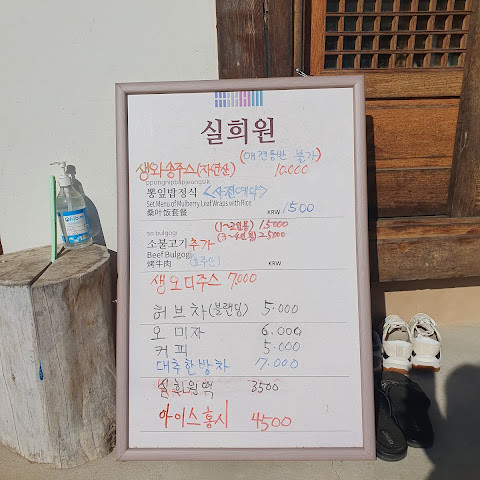 실희원
(애견동반 불가)
생와송주스(자연산) 10,000
뽕잎밥정식 <사전예약>
Set Menu of Mulberry Leaf Wraps with Rice
桑叶饭套餐 KRW 1500
(1~2인분) 15000
(3~4인분) 25000
so bulgogi
소불고기 추가
Beef Bulgogi (호주산)
烤牛肉 KRW
생오디주스 7.000
허브차(블랜딩) 5.000
오미자 6.000
커피 5.000
대추한방차 7.000
실희원액 3500
아이스홍시 4500